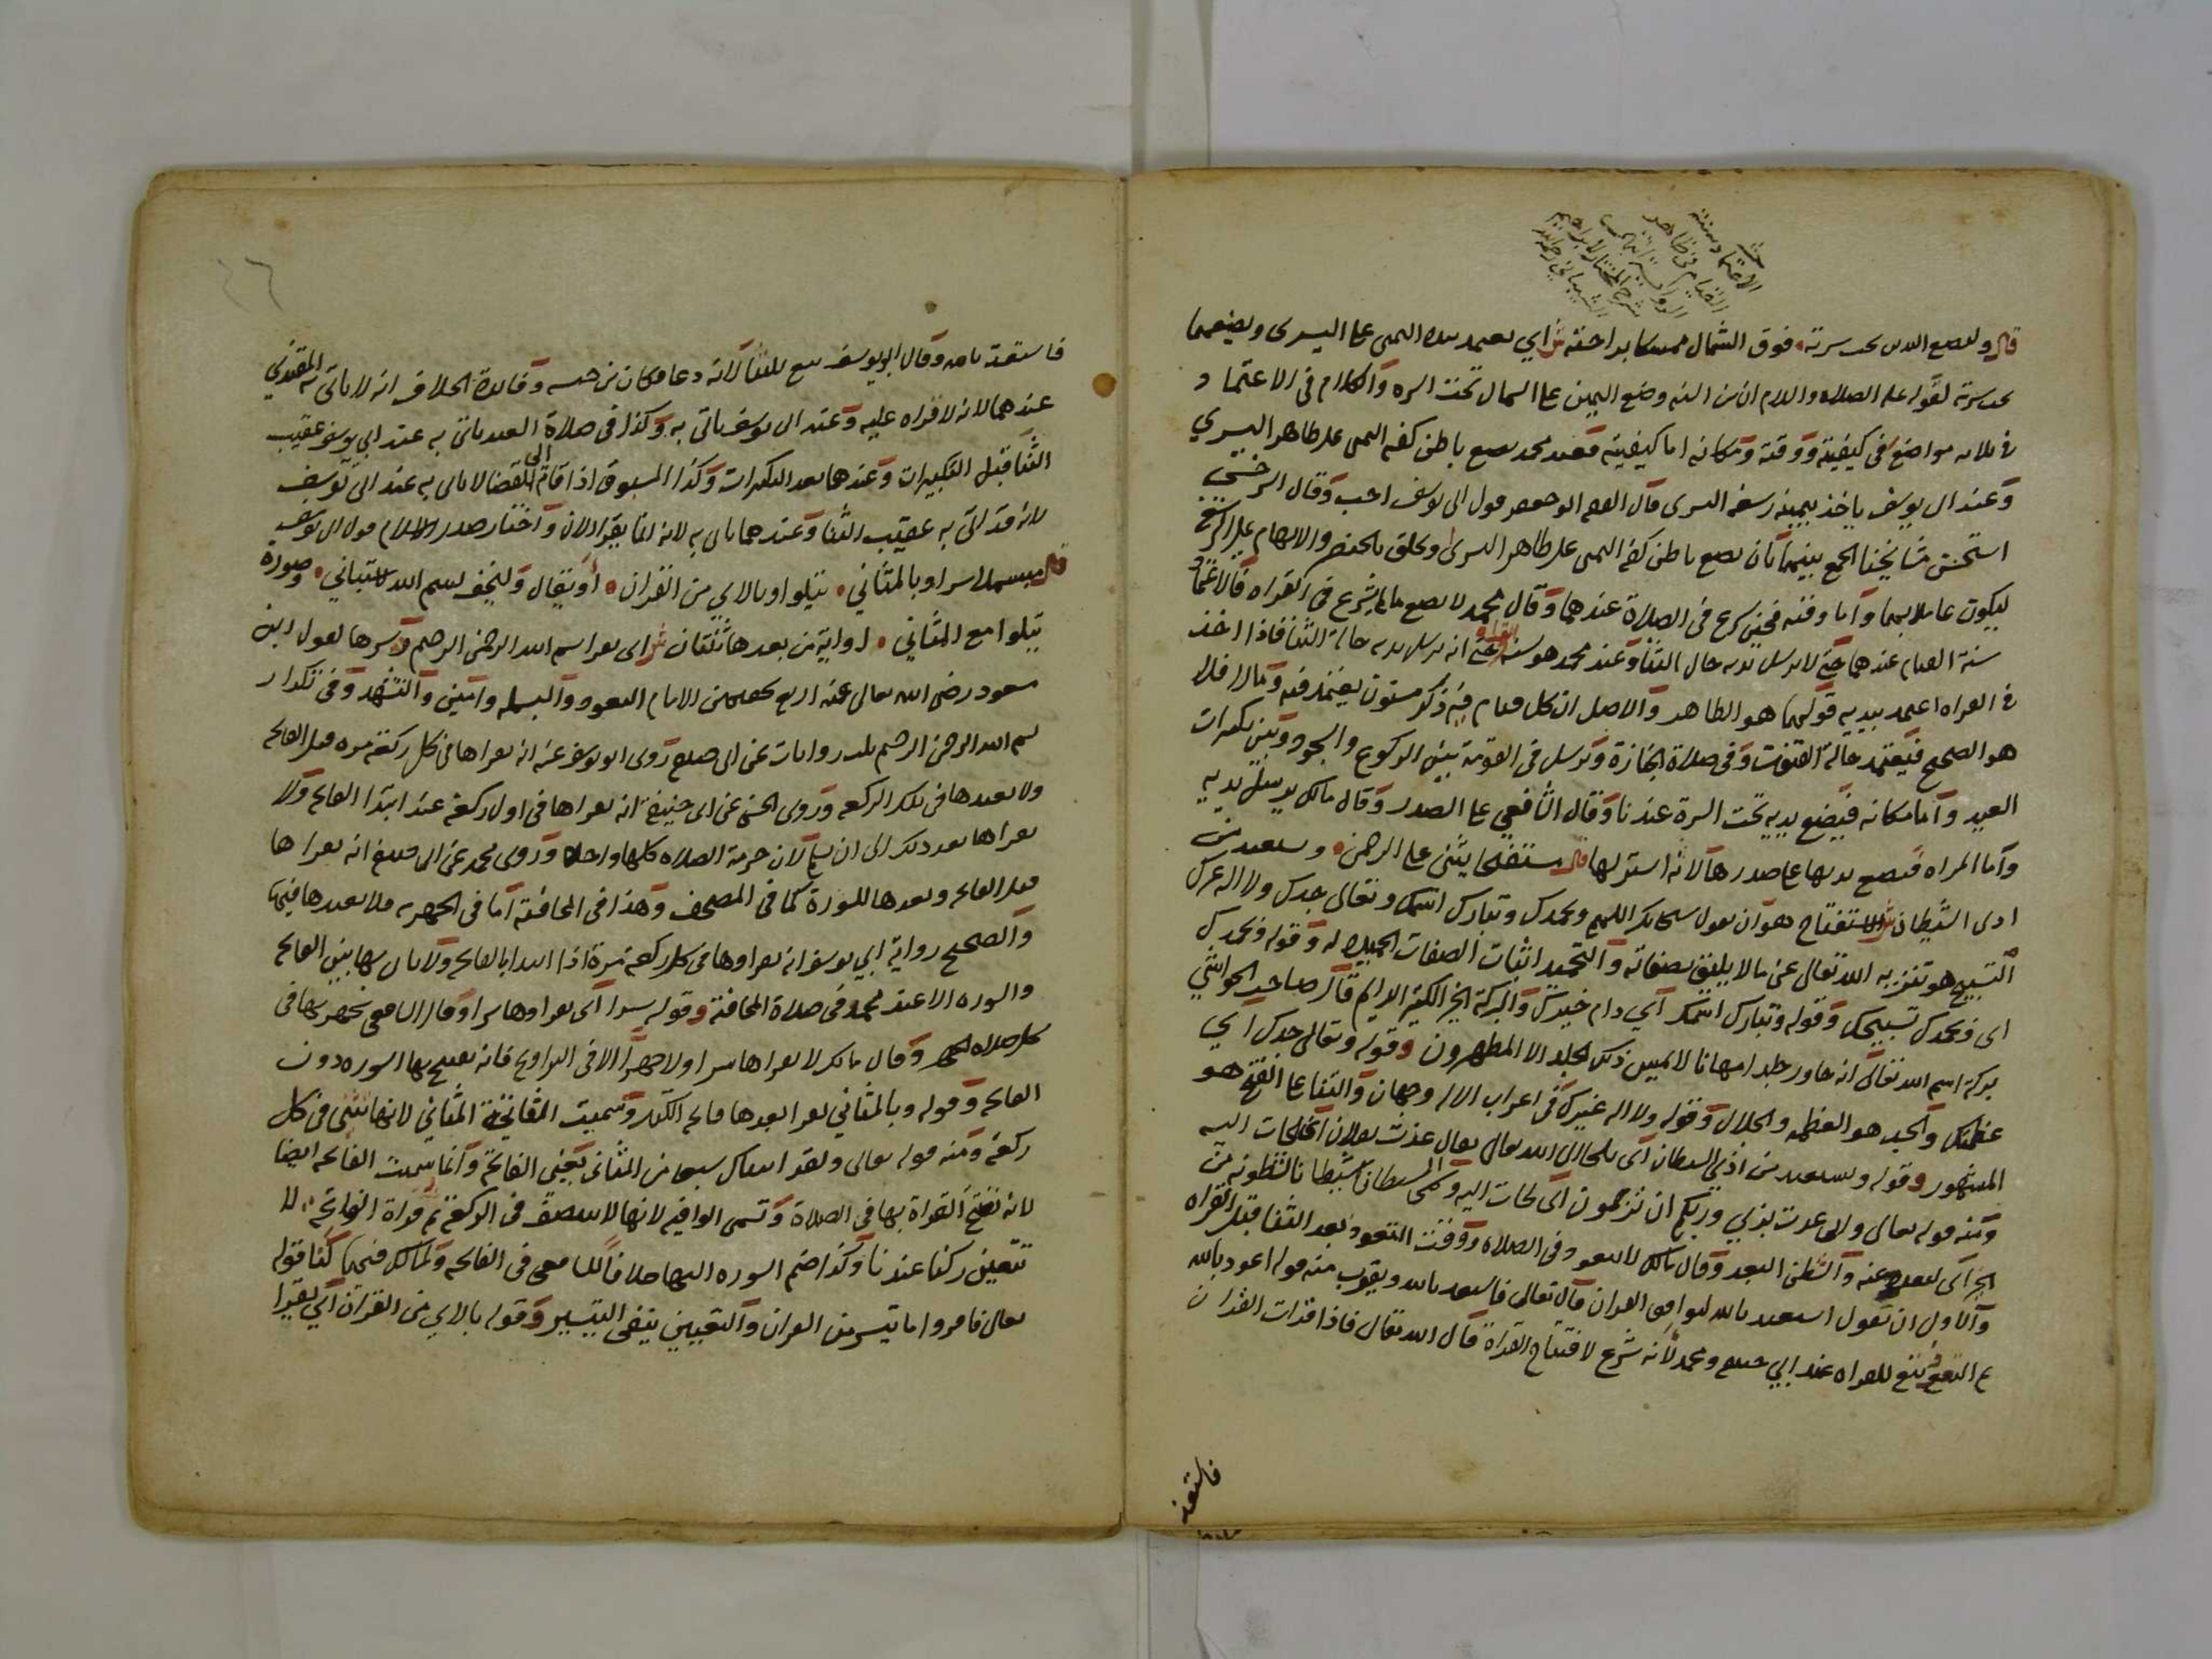 قال وليضع اليدين تحت سرته فوق الشمال ممسكا براحته ش اي يعتمد بيده اليمنى على اليسرى ويضعهما
تحت سرته لقوله عليه الصلاة والسلام ان من السنة وضع اليمين على الشمال تحت السرة والكلام في الاعتماد
في ثلاثة مواضع في كيفيته ووقته ومكانه اما كيفيته فعند محمد يضع باطن كفه اليمنى على ظاهر اليسرى
وعند ابي يوسف ياخذ بيمينه رسغه اليسرى قال الفقيه ابو جعفر قول ابي يوسف احب وقال السرخسي
استحسن مشايخنا الجمع بينهما بان يضع باطن كفه اليمنى على ظاهر اليسرى ويحلق بالخنصر والابهام على الرسغ
ليكون عاملا بهما واما وقته فحين شرع في الصلاة عندهما وقال محمد لا يضع ما لم يشرع في القراه فالاعتماد
سنة القيام عندهما حتى لا يرسل يديه حال الثنا وعند محمد هو سنة القراه حتى انه يرسل يديه حالة الثنا فاذا اخذ
في القراه اعتمد بيديه قولهما هو الظاهر والاصل ان كل قيام فيه ذكر مسنون يعتمد فيه وما لا فلا
هو الصحيح فيعتمد حالة القنوت وفي صلاة الجنازة ويرسل في القومة بين الركوع والسجود وبين تكبيرات
العيد واما مكانه فيضع يديه تحت السرة عندنا وقال الشافعي على الصدر وقال مالك يرسل يديه
واما المراه فتضع يديها على صدرها لانه استر لها قال مستفتحا يثني على الرحمن ويستعيذ من
اذى الشيطان ش الاستفتاح هو ان يقول سبحانك اللهم وبحمدك وتبارك اسمك وتعالى جدك ولا اله غيرك
التسبيح هو تنزيه الله تعالى عن ما لا يليق بصفاته والتحميد اثبات الصفات الحميدة له وقوله وبحمدك
اي وبحمدك تسبيحك وقوله وتبارك اسمك اي دام خيرك والبركة الخير الكثير الدايم قال صاحب الحواشي
بركة اسم الله تعالى انه جاور جلدا مهانا لا يمس ذلك الجلد الا المطهرون وقوله وتعالى جدك اي
عظمتك والجد هو العظمة والجلال وقوله ولا اله غيرك في اعراب الاله وجهان والثنا على الفتح هو
المشهور وقوله ويستعيذ من اذى الشيطان اي يلجا الى الله تعالى يقال عذت بفلان اي لجات اليه
ومنه قوله تعالى واني عذت بربي وربكم ان ترجمون اي لجات اليه وسمي الشيطان شيطانا لشطونه من
الخير اي لبعده عنه والشطن البعد وقال مالك لا يتعوذ في الصلاة ووقت التعوذ بعد الثنا قبل القراه
والاولى ان يقول استعيذ بالله ليوافق القران قال تعالى فاستعذ بالله ويقرب منه قوله اعوذ بالله
ثم التعوذ تبع للقراه عند ابي حنيفة ومحمد لانه شرع لافتتاح القراة قال الله تعالى فاذا قرات القران
فاستعذ
فاستعذ بالله وقال ابو يوسف تبع للثنا لانه دعا فكان من جنسه وفايدة الخلاف انه لا ياتي به المقتدي
عندهما لانه لا قراه عليه وعند ابي يوسف ياتي به وكذا في صلاة العيد ياتي به عند ابي يوسف عقيب
الثنا قبل التكبيرات وعندهما بعد التكبيرات وكذا المسبوق اذا قام الى القضا لا ياتي به عند ابي يوسف
لانه قد اتى به عقيب الثنا وعندهما ياتي به لانه انما يقرا الان واختار صدر الاسلام قول ابي يوسف
قال مبسملا سرا وبالمثاني يتلوا وبالاي من القران او يقال وليخف بسم الله للتباني وسورة
يتلوا مع المثاني او اية من بعدها ثنتان ش اي يقرا بسم الله الرحمن الرحيم ويسرها لقول ابن
مسعود رضي الله تعالى عنه اربع يخفيهن الامام التعوذ والبسملة وامين والتشهد وفي تكرار
بسم الله الرحمن الرحيم ثلث روايات عن ابي حنيفة روى ابو يوسف عنه انه يقراها في كل ركعة مرة قبل الفاتحة
ولا يعيدها في تلك الركعة وروى الحسن عن ابي حنيفة انه يقراها في اول ركعة عند ابتدا الفاتحة ولا
يقراها بعد ذلك الى ان يسلم لان حرمة الصلاة كلها واحدة وروى محمد عن ابي حنيفة انه يقراها
قبل الفاتحة وبعدها للسورة كما في المصحف وهذا في المخافتة اما في الجهرية فلا يعيدها فيها
والصحيح رواية ابي يوسف انه يقراوها في كل ركعة مرة اذا ابتدا بالفاتحة ولا ياتي بها بين الفاتحة
والسورة الا عند محمد في صلاة المخافتة وقوله سرا اي يقراوها سرا وقال الشافعي يجهر بها في
كل صلاة الجهر وقال مالك لا يقراها سرا ولا جهرا الا في التراويح فانه يفتتح بها السورة دون
الفاتحة وقوله وبالمثاني يقرا بعدها فاتحة الكتاب وسميت الفاتحة المثاني لانها تثنى في كل
ركعة ومنه قوله تعالى ولقد اتيناك سبعا من المثاني يعني الفاتحة وانما سميت الفاتحة ايضا
لانه تفتح القراة بها في الصلاة وتسمى الوافيه لانها لا تنصف في الركعة ثم قراة الفاتحة لا
تتعين ركنا عندنا وكذا ضم السورة اليها خلافا للشافعي في الفاتحة ولمالك فيهما لنا قوله
تعالى فاقروا ما تيسر من القران والتعيين ينفي التيسير وقوله بالاي من القران اي يقرا